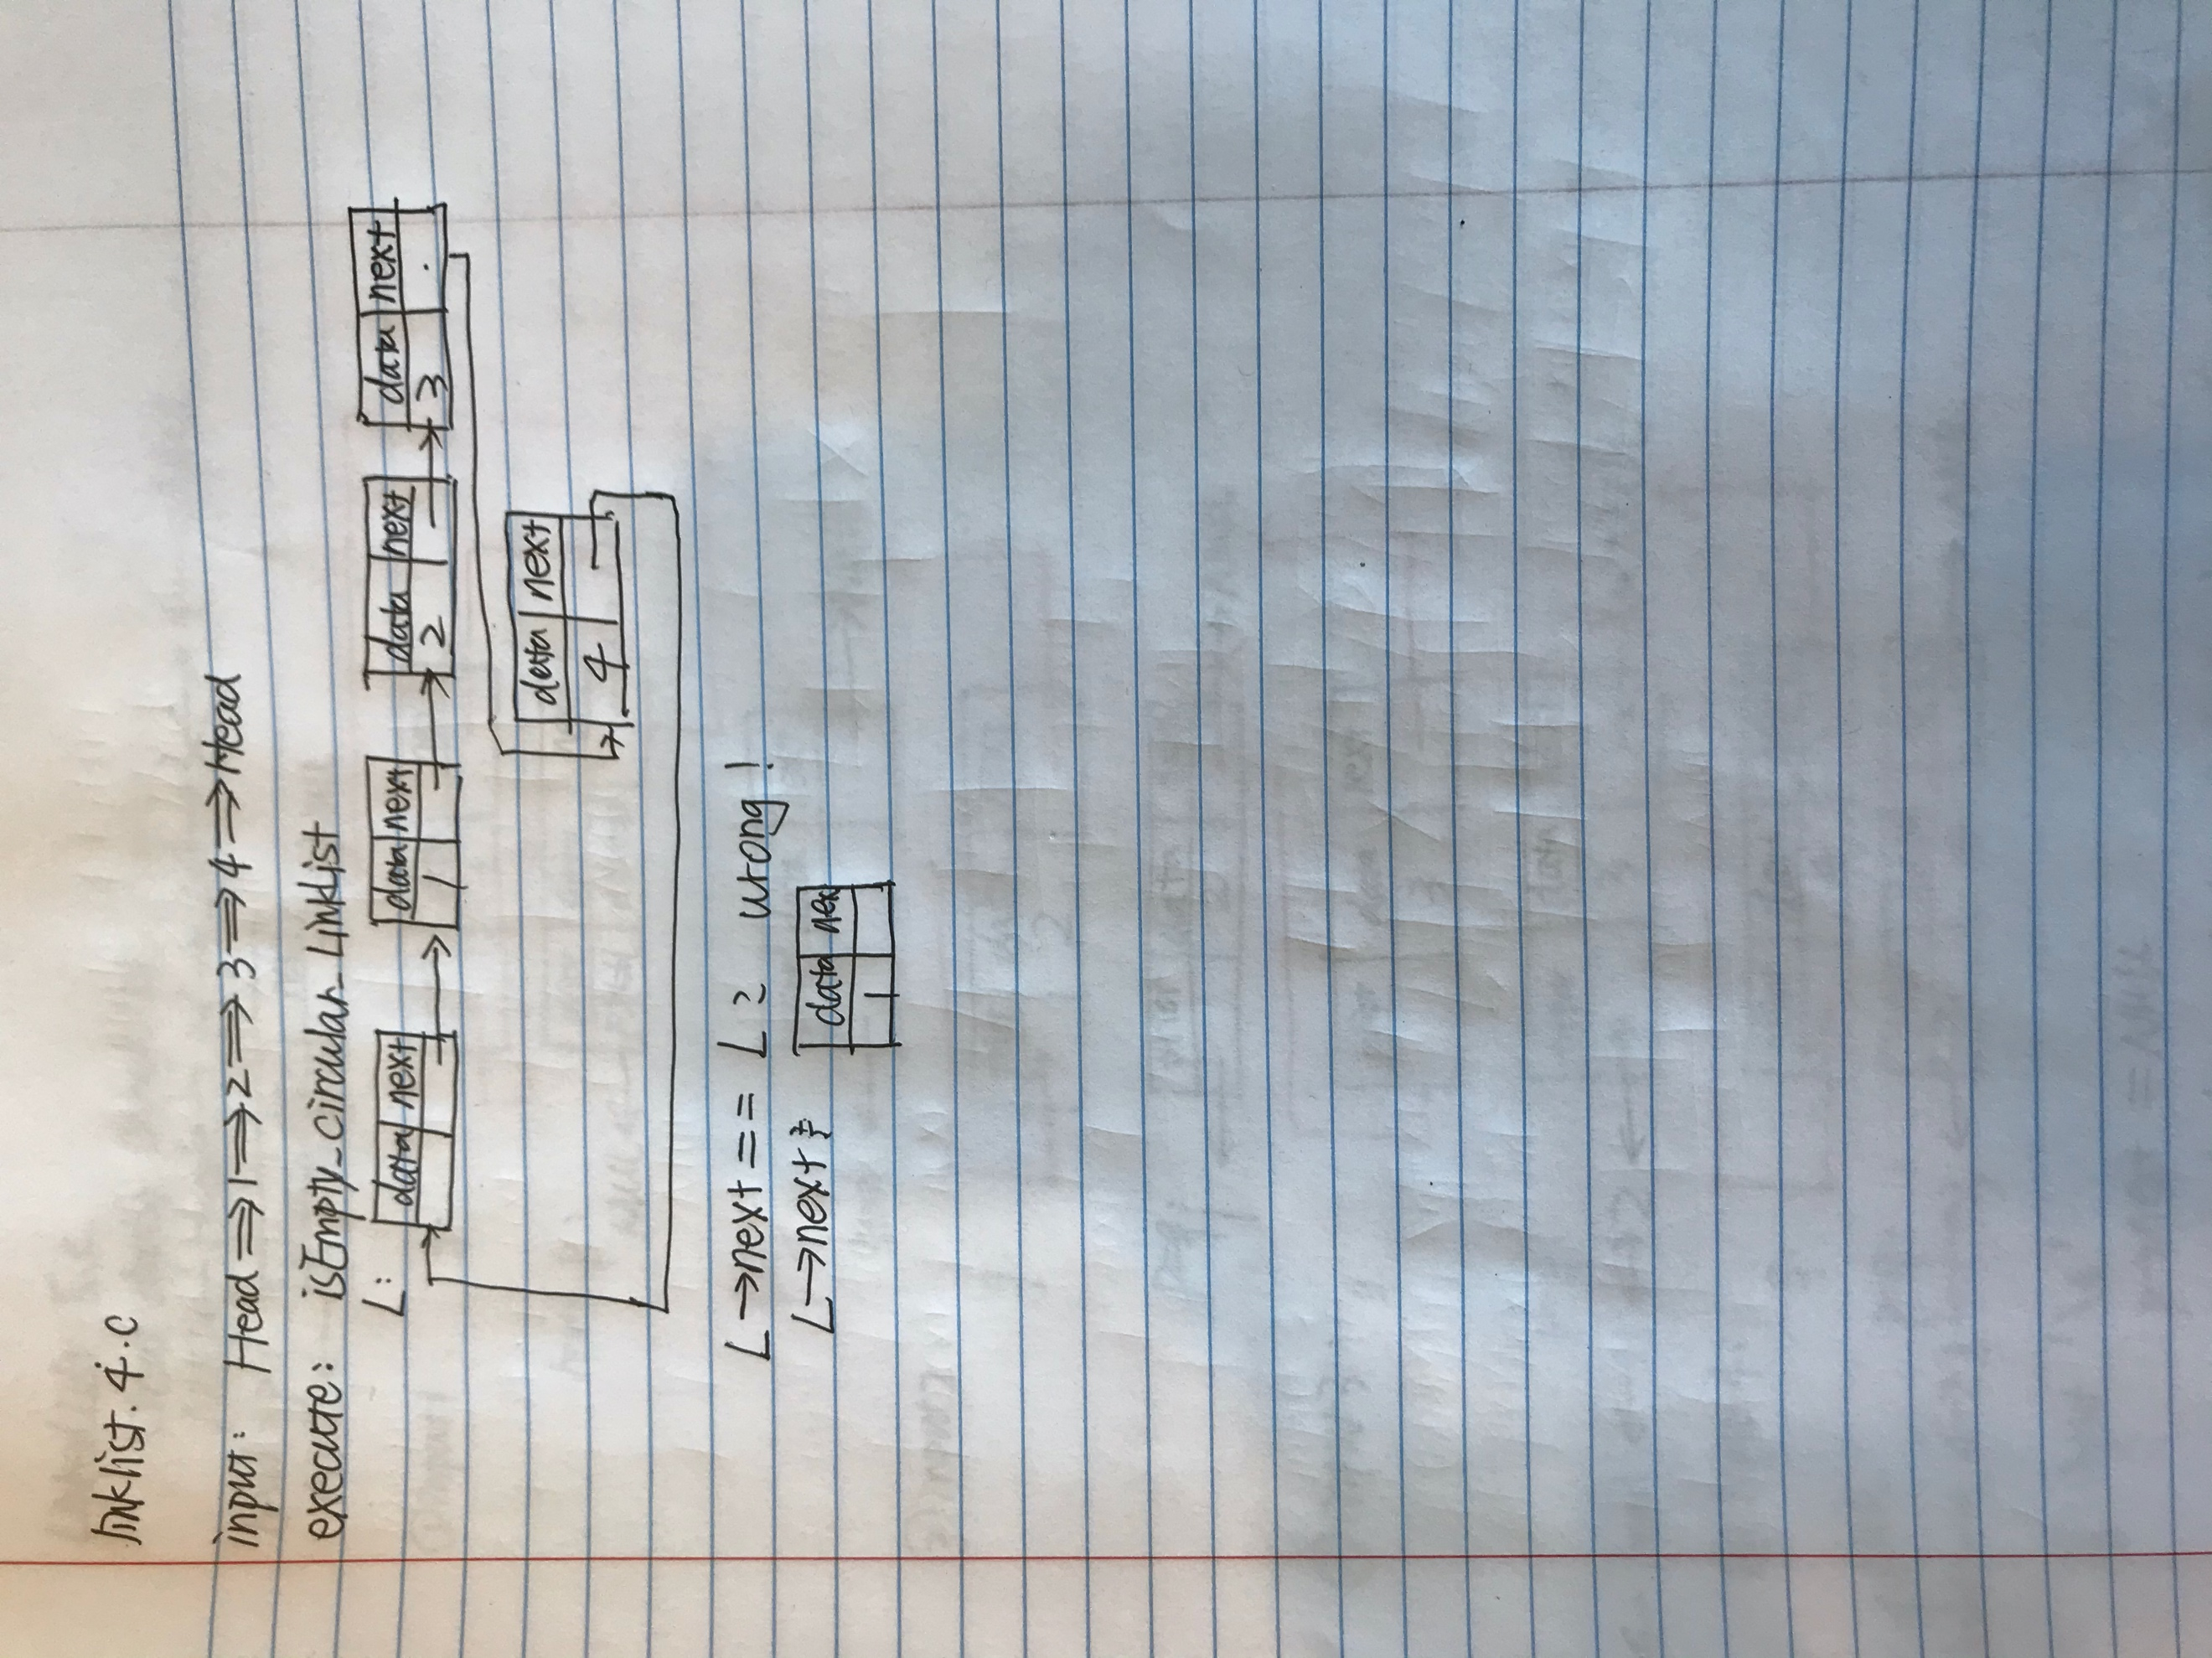 linklist.4.c
input: Head⇒1⇒2⇒3⇒4⇒Head
execute: isEmpty_circular_Linklist
L:
data next data next data next data next
1 2 3
data next
4
L→next == L ? wrong!
L→next: data nex
1